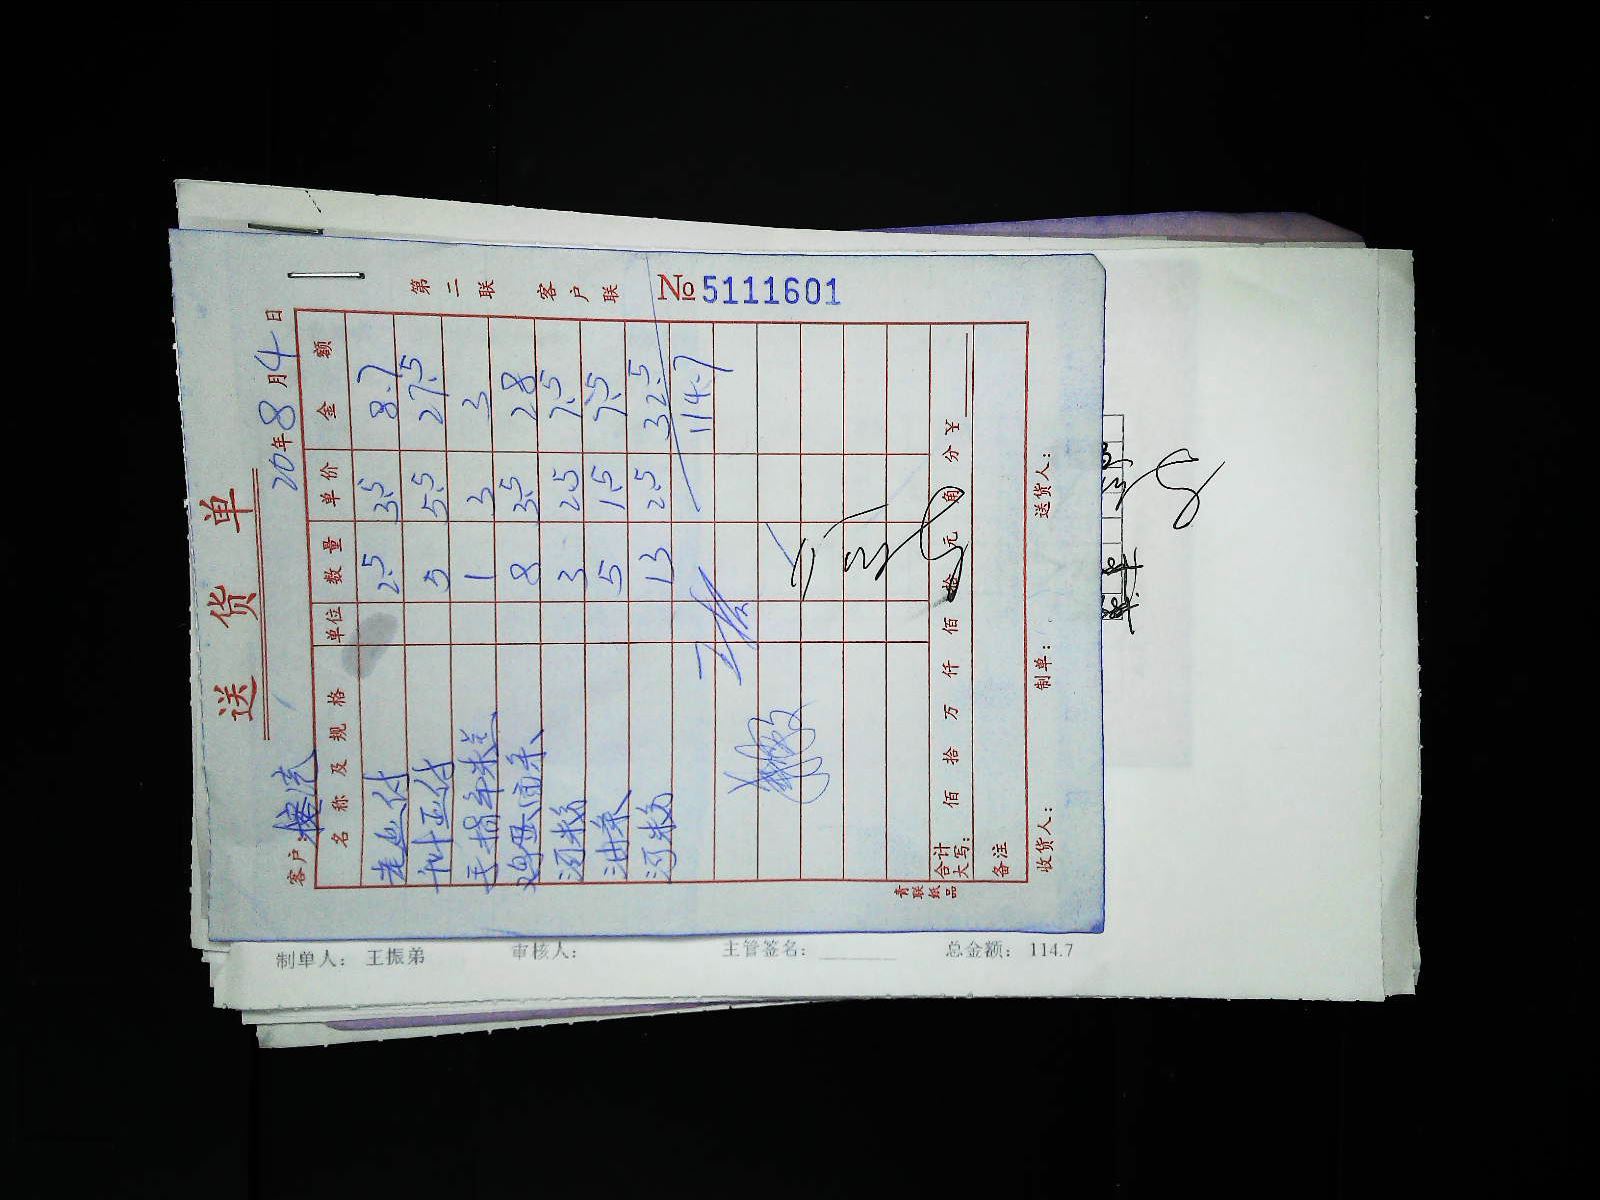 送 货 单
第二联 客户联
№ 5111601
客户：
20 年 8 月 4 日
名称及规格 单位 数量 单价 金额
2.5 3.5 8.7
5 5.5 27.5
1 3 3
8 3.5 28
3 2.5 7.5
油条 5 1.5 7.5
河粉 13 2.5 32.5
114.7
合计大写： 佰 拾 万 仟 佰 拾 元 角 分 ¥
备注
收货人： 制单： 送货人：
青联纸品
制单人： 王振弟 审核人： 主管签名： 总金额： 114.7